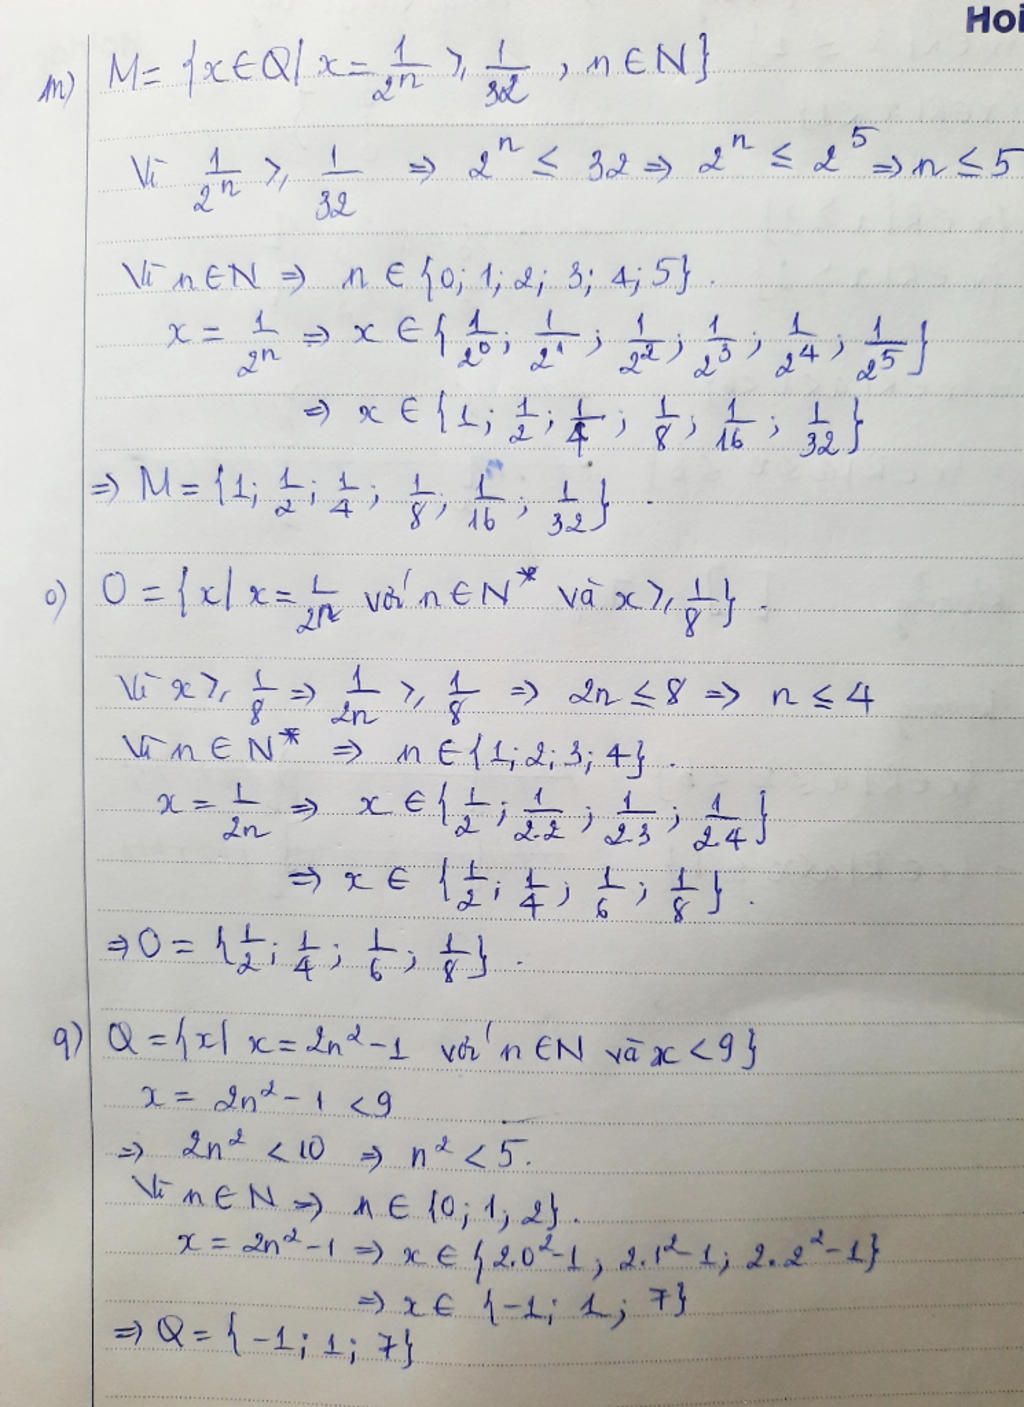 Hoi
m) M = {x ∈ Q | x = 1/2ⁿ ⩾ 1/32 , n ∈ N}
Vì 1/2ⁿ ⩾ 1/32 ⇒ 2ⁿ ≤ 32 ⇒ 2ⁿ ≤ 2⁵ ⇒ n ≤ 5
Vì n ∈ N ⇒ n ∈ {0; 1; 2; 3; 4; 5}.
x = 1/2ⁿ ⇒ x ∈ {1/2⁰; 1/2¹; 1/2²; 1/2³; 1/2⁴; 1/2⁵}
⇒ x ∈ {1; 1/2; 1/4; 1/8; 1/16; 1/32}
⇒ M = {1; 1/2; 1/4; 1/8; 1/16; 1/32}.
o) O = {x | x = 1/2n với n ∈ N* và x ⩾ 1/8}.
Vì x ⩾ 1/8 ⇒ 1/2n ⩾ 1/8 ⇒ 2n ≤ 8 ⇒ n ≤ 4
Vì n ∈ N* ⇒ n ∈ {1; 2; 3; 4}.
x = 1/2n ⇒ x ∈ {1/2; 1/2.2; 1/2.3; 1/2.4}
⇒ x ∈ {1/2; 1/4; 1/6; 1/8}.
⇒ O = {1/2; 1/4; 1/6; 1/8}.
q) Q = {x | x = 2n² - 1 với n ∈ N và x < 9}
x = 2n² - 1 < 9
⇒ 2n² < 10 ⇒ n² < 5.
Vì n ∈ N ⇒ n ∈ {0; 1; 2}.
x = 2n² - 1 ⇒ x ∈ {2.0² - 1; 2.1² - 1; 2.2² - 1}
⇒ x ∈ {-1; 1; 7}
⇒ Q = {-1; 1; 7}